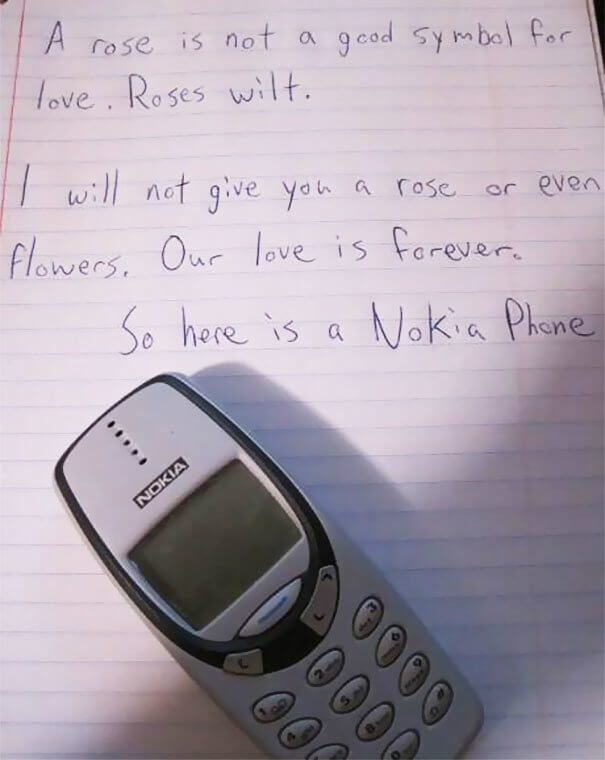 A rose is not a good symbol for
love. Roses wilt.
I will not give you a rose or even
flowers. Our love is forever.
So here is a Nokia Phone
NOKIA
C
1
2
3
4
5
6
8
9
0
#